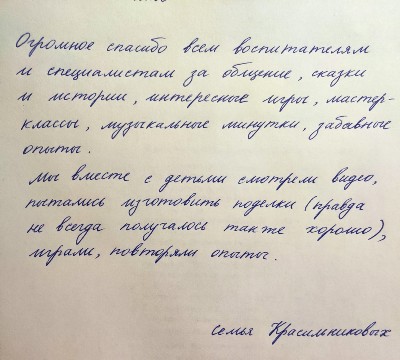 Огромное спасибо всем воспитателям
и специалистам за общение, сказки
и истории, интересные игры, мастер-
классы, музыкальные минутки, забавные
опыты.
Мы вместе с детьми смотрели видео,
пытались изготовить поделки (правда
не всегда получалось также хорошо),
играли, повторяли опыты.
семья Красильниковых